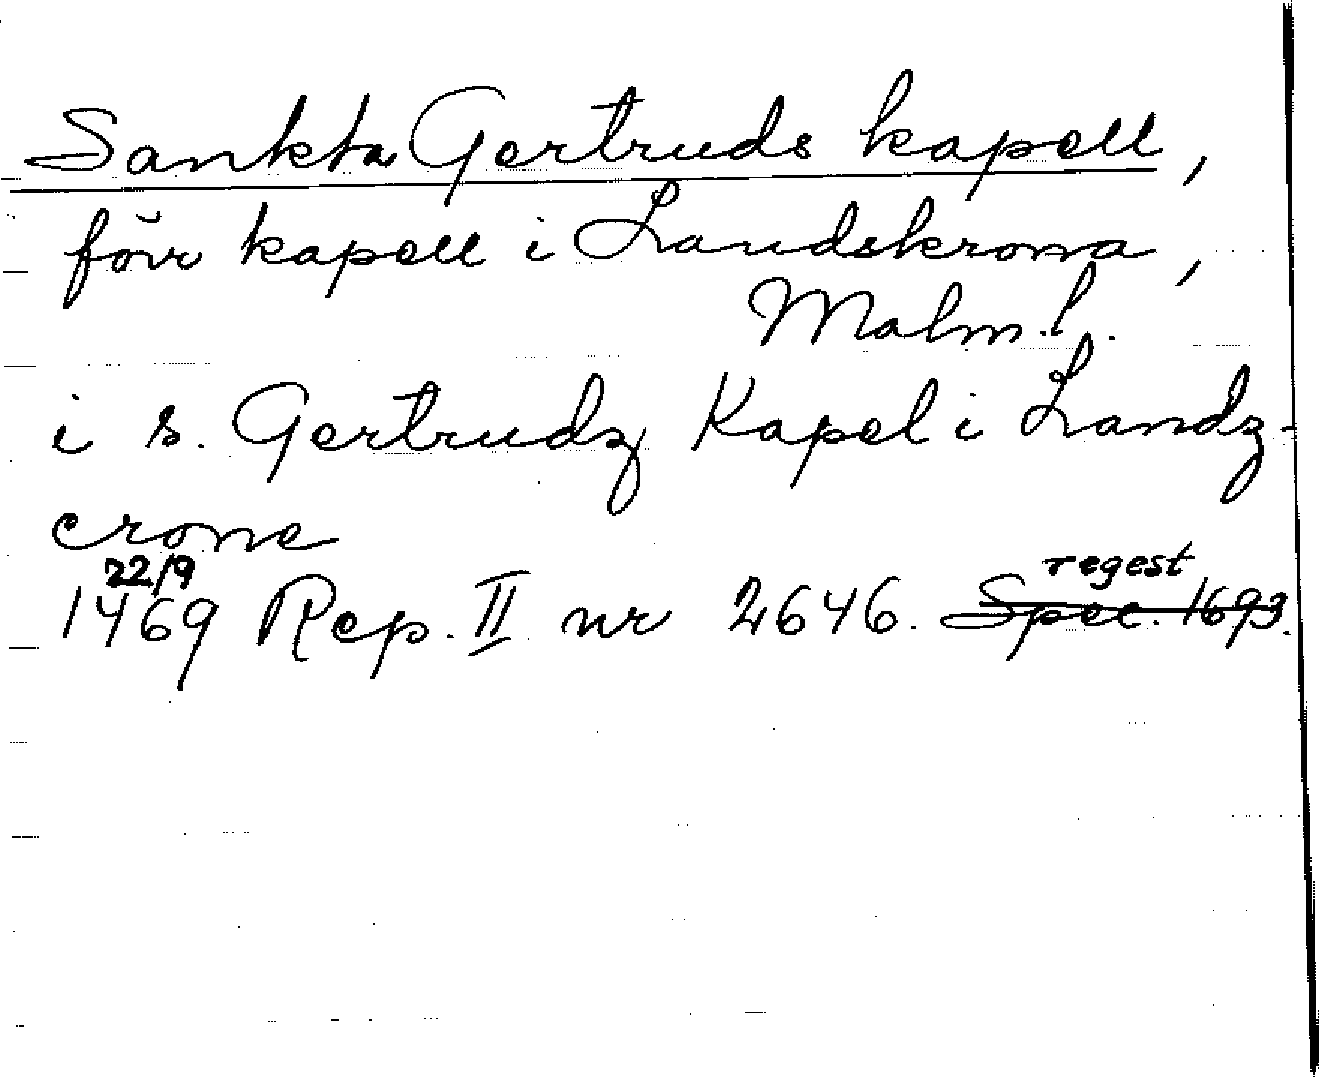 Sankta Gertruds kapell,
förr kapell i Landskrona,
Malm. l.
i s. Gertrudz Kapel i Landz-
crone
22/9
regest
1469 Rep. II nr 2646. Spec. 1693.